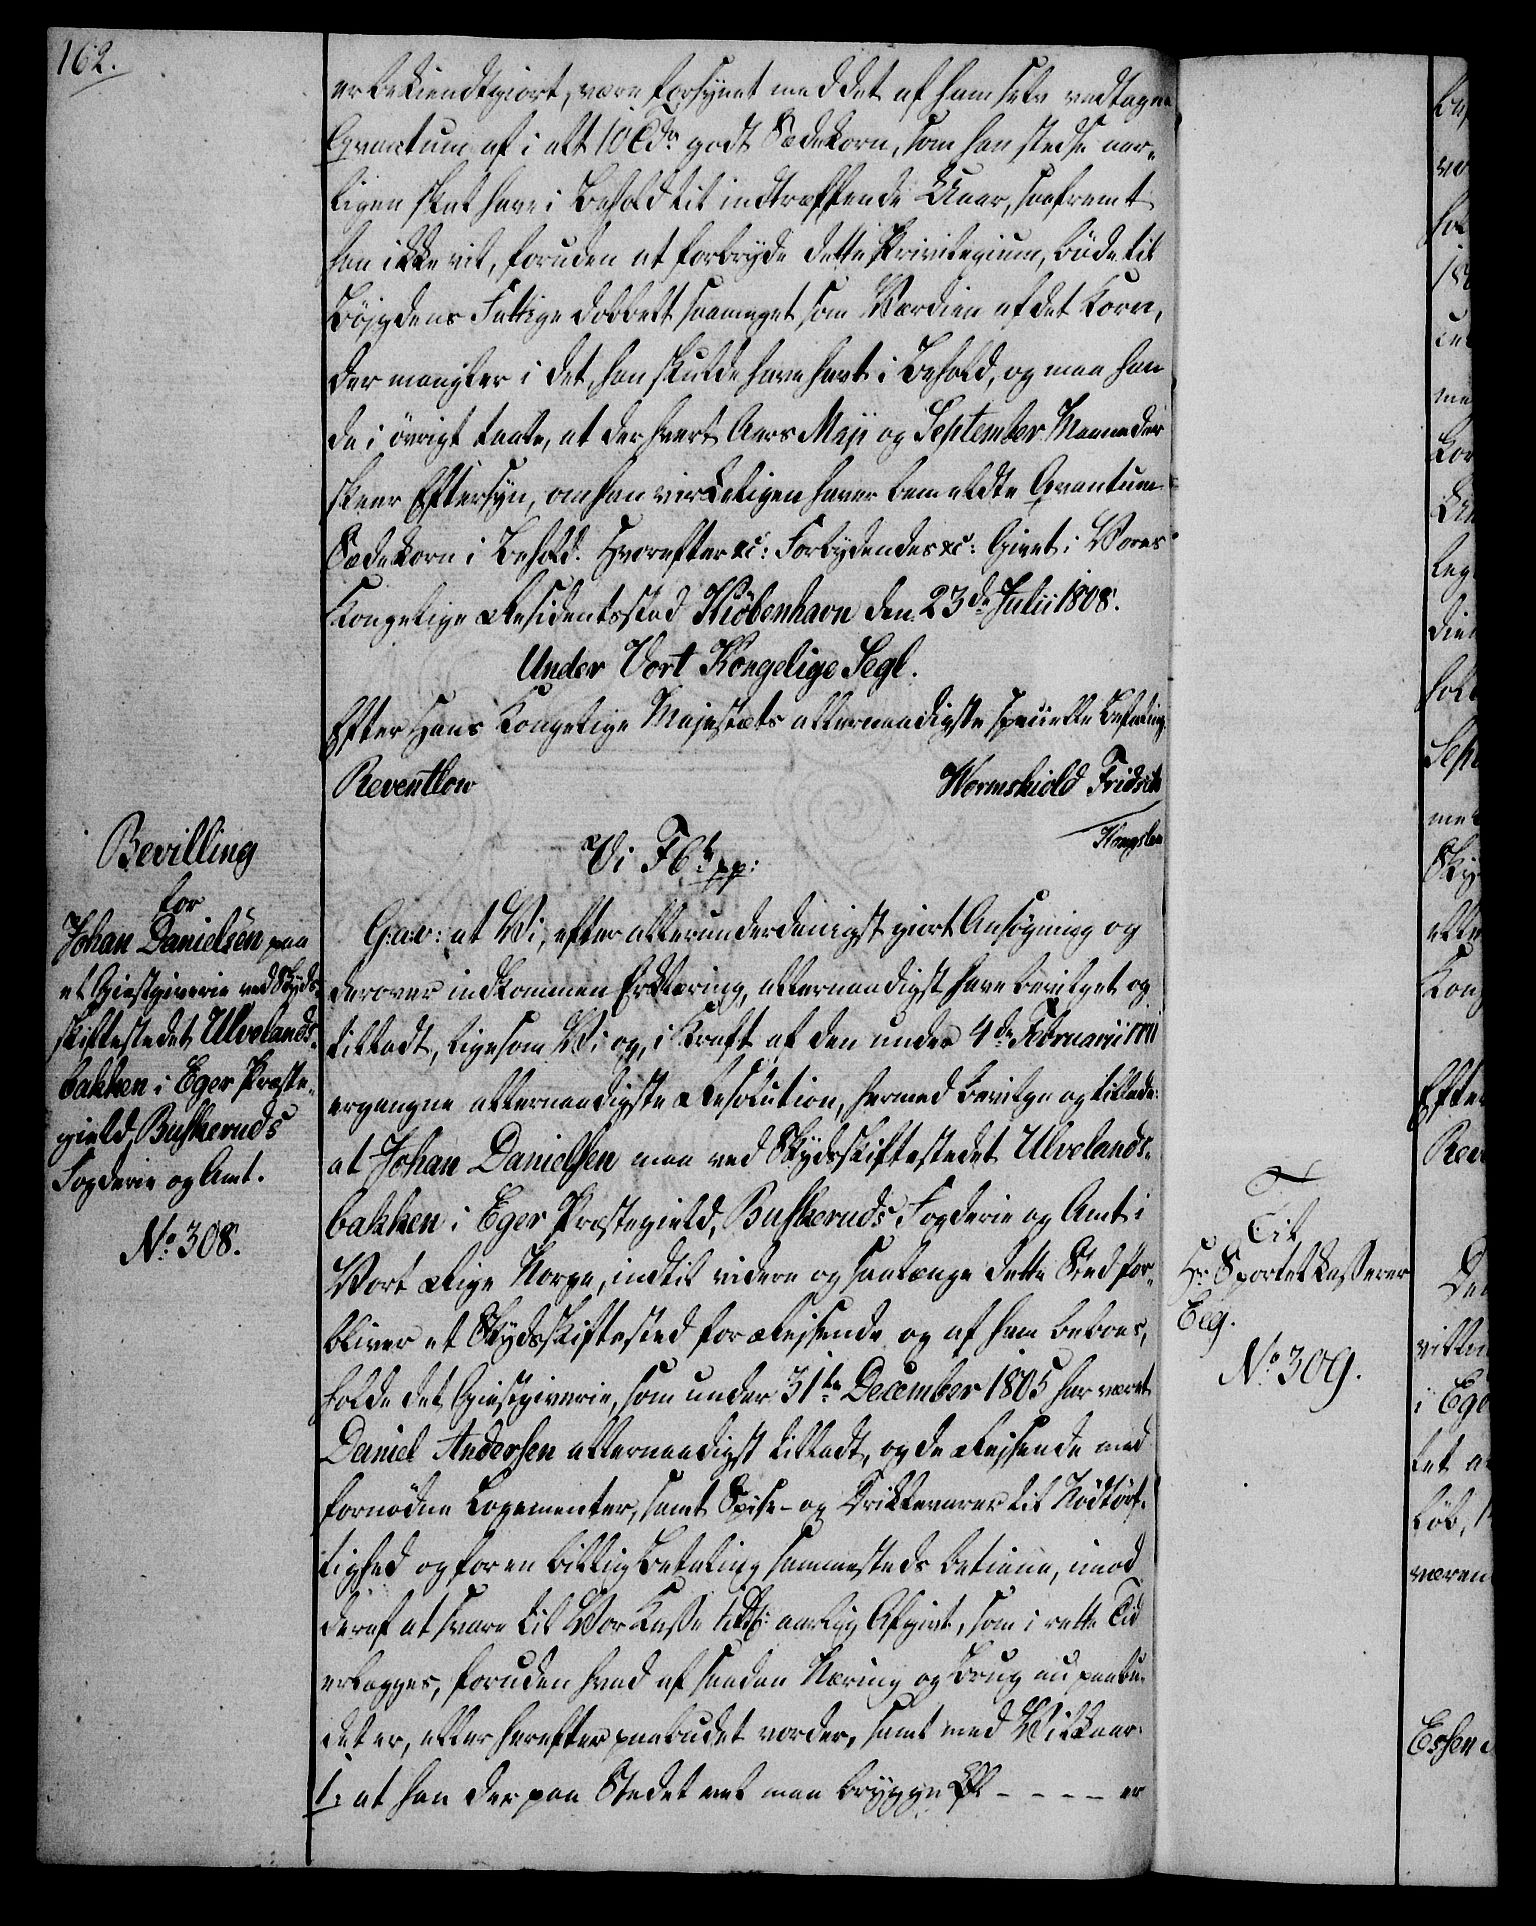 162.
er bekiendtgiort, være forsynet med det af ham selv vedtagne
Qvantum af i alt 10 Tdr godt Sædekorn, som han stedse aar-
ligen skal have i Behold til indtræffende Uaar, saafremt
han ikke vil, foruden at forbryde dette Privilegium, bøde til
Bøigdens Fattige dobbelt saameget som Værdien af det Korn,
der mangler i det han skulde have havt i Behold, og maa han
da i øvrigt taale, at der hvert Aars Maji og September Maaneder
skeer Eftersyn, om han virkeligen haver bemeldte Qvantum
Sædekorn i Behold. Hvorefter &c: Forbydendes &c: Givet i Vores
Kongelige Residentsstad Kiöbenhavn den 23de Julii 1808.
Under Vort Kongelige Segl.
Efter Hans Kongelige Majestæts allernaadigste specielle Befaling.
Reventlow
Wormskiold Fridsch
Kongslew
Bevilling
for
Johan Danielsen paa
et Giestgiverie ved Skyds-
skiftestedet Ulvelands-
bakken i Eger Præste-
gield, Buskeruds
Fogderie og Amt.
No 308.
Vi F 6te pp:
G: a: v: at Vi, efter allerunderdanigst giort Ansøgning og
derover indkommen Erklæring, allernaadigst have bevilget og
tilladt, ligesom Vi og, i Kraft af den under 4de Februarii
ergangne allernaadigste Resolution, hermed bevilge og tillade:
at Johan Danielsen maa ved Skydsskiftestedet Ulvelands-
bakken i Eger Præstegield, Buskeruds Fogderie og Amt i
Vort Rige Norge, indtil videre og saalænge dette Sted for-
bliver et Skydsskiftested for Reisende og af ham beboes,
holde det Giestgiverie, som under 31te December 1805 har været
Daniel Andersen allernaadigst tilladt, og de Reisende med
fornødne Logementer, samt Spise- og Drikkevarer til Nødtørf-
tighed og for en billig Betaling sammesteds betiene, imod
deraf at svare til Vor Kasse aarlig Afgivt, som i rette Tid
erlægges, foruden hvad af saadan Næring og Brug nu paabu-
det er, eller herefter paabudet vorder, samt med Vilkaar:
1: at han der paa Stedet vel maa brygge Øl - - - - er
Til
Hr Sportelkasserer
No 309.